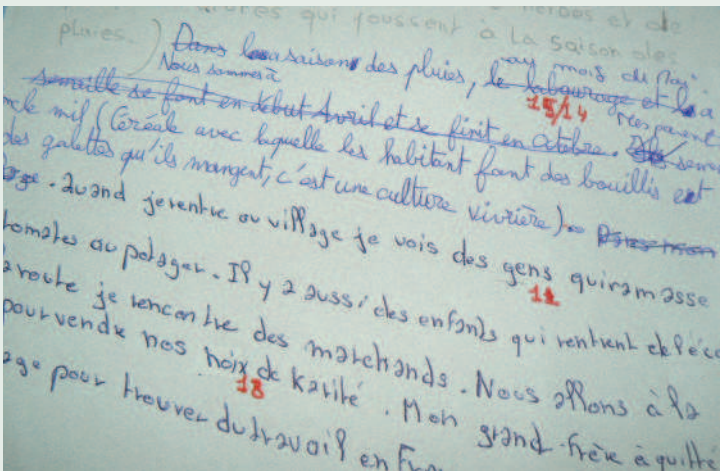 qui poussent à la saison des
pluies.) Dans la saison des pluies, au mois de Mai.
Nous sommes à
le labourage et la
semaille se font en début Avril et se finit en Octobre.
15/14
le mil (Céréal avec laquelle les habitant font des bouillis et
des galettes qu'ils mangent, c'est une culture vivrière).
. Quand je rentre au village je vois des gens qui ramasse
11
tomates au potager. Il y a aussi des enfants qui rentrent de l'éco
route je rencontre des marchands. Nous allons à la
pour vendre nos noix de Karité. Mon grand-frère à quitté
18
age pour trouver du travail en Fra